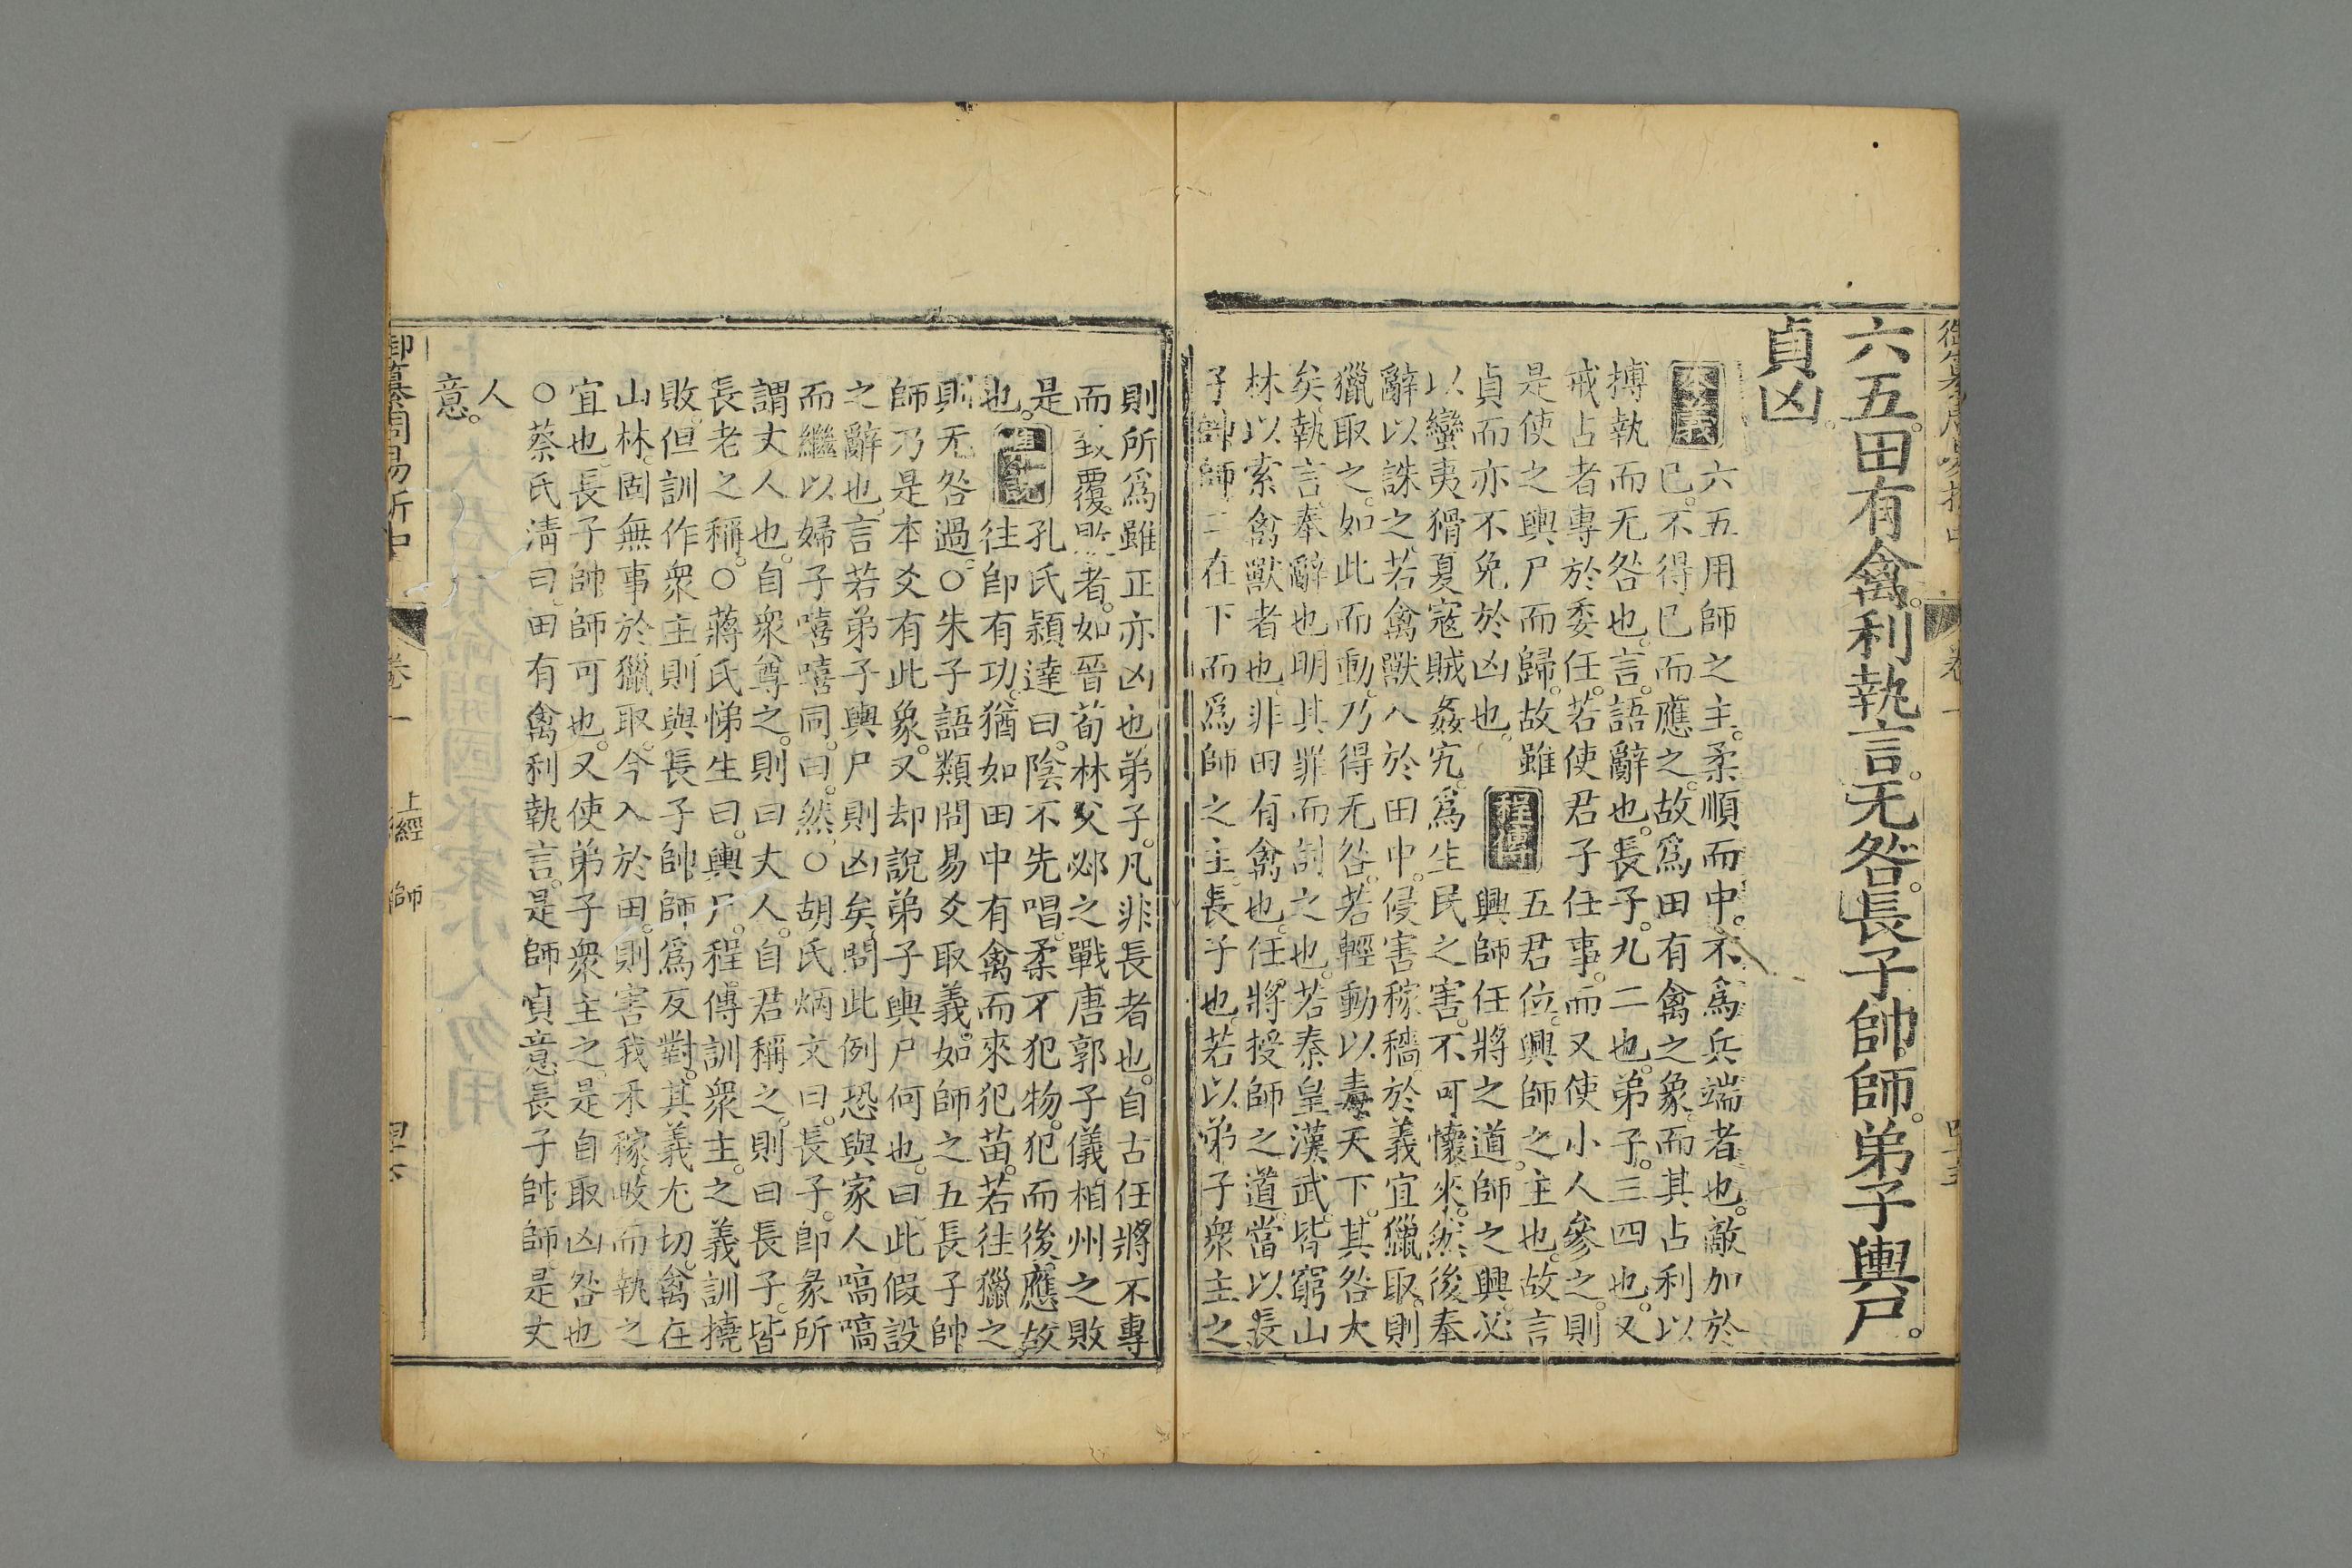 六五。田有禽。利執言。无咎。長子帥師。弟子輿尸。
貞凶。
本義
六五用師之主。柔順而中。不爲兵端者也。敵加於
已。不得已而應之。故爲田有禽之象。而其占利以
搏執而无咎也。言。語辭也。長子。九二也。弟子。三四也。又
戒占者專於委任。若使君子任事。而又使小人參之。則
是使之輿尸而歸。故雖
貞而亦不免於凶也。
程傳
五君位。興師之主也。故言
興師任將之道。師之興。必
以蠻夷猾夏寇賊姦宄。爲生民之害。不可懷來。然後奉
辭以誅之。若禽獸入於田中。侵害稼穡。於義宜獵取。則
獵取之。如此而動。乃得无咎。若輕動以毒天下。其咎大
矣。執言。奉辭也。明其罪而討之也。若秦皇漢武。皆窮山
林以索禽獸者也。非田有禽也。任將授師之道。當以長
子帥師。二在下而爲師之主。長子也。若以弟子衆主之
則所爲雖正亦凶也。弟子。凡非長者也。自古任將不專
而致覆敗者。如晉荀林父邲之戰。唐郭子儀相州之敗
是
也。
集說
孔氏穎達曰。陰不先唱。柔不犯物。犯而後應。故
往卽有功。猶如田中有禽而來犯苗。若往獵之。
則无咎過。○朱子語類問易爻取義。如師之五長子帥
師乃是本爻有此象。又却說弟子輿尸何也。曰。此假設
之辭也。言若弟子輿尸則凶矣。問此例恐與家人嗃嗃
而繼以婦子嘻嘻同。曰。然。○胡氏炳文曰。長子。卽彖所
謂丈人也。自衆尊之。則曰丈人。自君稱之。則曰長子。皆
長老之稱。○蔣氏悌生曰。輿尸。程傳訓衆主。之義訓撓
敗。但訓作衆主。則與長子帥師爲反對。其義尤切。禽在
山林。固無事於獵取。今入於田。則害我禾稼。畋而執之
宜也。長子帥師可也。又使弟子衆主之。是自取凶咎也
○蔡氏淸曰。田有禽利執言。是師貞意。長子帥師。是丈
人
意。
御纂周易折中 卷一 上經 師 四十六